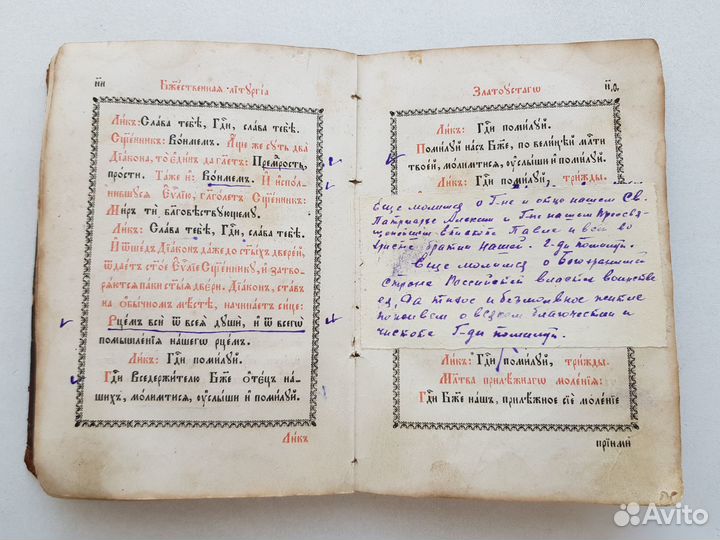 н҃и
Бж҃ественная літургїа
Ли́къ: Сла́ва тебѣ̀, Гдⷭ҇и, сла́ва тебѣ̀.
Сщ҃е́нникъ: Во́нмемъ. А҆́ще же сꙋ́ть два̀
дїа́кона, то є҆ди́нъ да гл҃етъ: Премⷣрость,
про́сти. Та́же и҆: Во́нмемъ. И҆ и҆спо́л-
нившꙋсѧ є҆ѵⷢ҇лїю, гл҃етъ Сщ҃е́нникъ:
Ми́ръ тѝ благовѣствꙋ́ющемꙋ.
Ли́къ: Сла́ва тебѣ̀, Гдⷭ҇и, сла́ва тебѣ̀.
И҆ ѿше́дъ Дїа́конъ да́же до ст҃ы́хъ две́рей,
ѿдае́тъ ст҃о́е Є҆ѵⷢ҇лїе Сщ҃е́нникꙋ, и҆ затво-
рѧ́ютсѧ па́ки ст҃ы̑ѧ две́ри. Дїа́конъ, ста́въ
на ѡ҆бы́чномъ мѣ́стѣ, начина́етъ си́це:
Рце́мъ всѝ ѿ всеѧ̀ дꙋшѝ, и҆ ѿ всегѡ̀
помышле́нїѧ на́шегѡ рце́мъ.
Ли́къ: Гдⷭ҇и поми́лꙋй.
Гдⷭ҇и Вседержи́телю Бж҃е Ѻ҆те́цъ на́-
шихъ, мо́лимтисѧ, ᲂу҆слы́ши и҆ поми́лꙋй.
Ли́къ
Златоꙋ́стагѡ
н҃ѳ.
Ли́къ: Гдⷭ҇и поми́лꙋй.
Поми́лꙋй на́съ Бж҃е, по вели́цѣй мл҃ти
твое́й, мо́лимтисѧ, ᲂу҆слы́ши и҆ поми́лꙋй.
Ли́къ: Гдⷭ҇и поми́лꙋй, три́жды.
Еще молимся о Г-не и отце нашем Св.
Патриархе Алексии и Г-не нашем Преосвя-
щеннейшем епископе Павле и всей во
Христе братии нашей. Г-ди помилуй.
Еще молимся о Богохранимой
стране Российской властех воинстве
ея, Да тихое и безмолвное житие
поживем о всяком благочестии и
чистоте Г-ди помилуй.
Ли́къ: Гдⷭ҇и поми́лꙋй, три́жды.
Мл҃тва приле́жнагѡ моле́нїѧ.
Гдⷭ҇и Бж҃е на́шъ, приле́жное сїѐ моле́нїе
прїимѝ
Avito